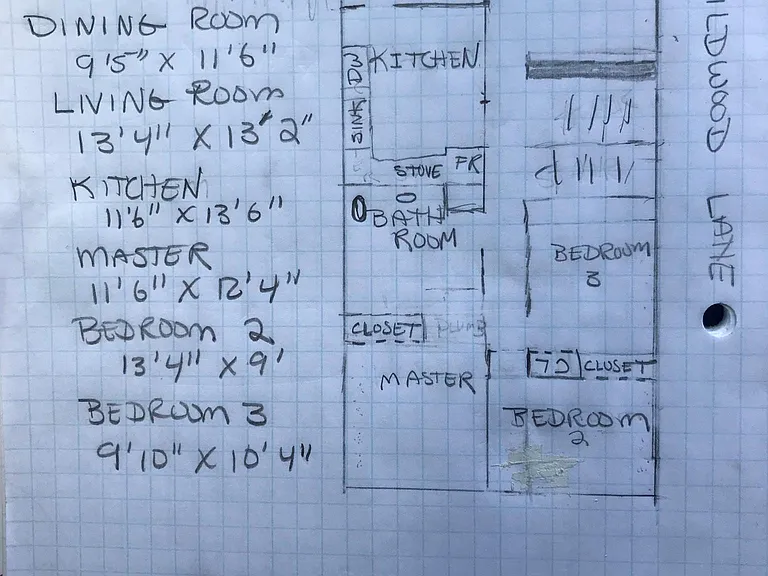 DINING ROOM
9'5" X 11'6"
LIVING ROOM
13'4" X 13'2"
KITCHEN
11'6" X 13'6"
MASTER
11'6" X 12'4"
BEDROOM 2
13'4" X 9'
BEDROOM 3
9'10" X 10'4"
KITCHEN
SINK
STOVE
FR
BATH
ROOM
CLOSET
MASTER
BEDROOM
3
CLOSET
BEDROOM
2
LANE